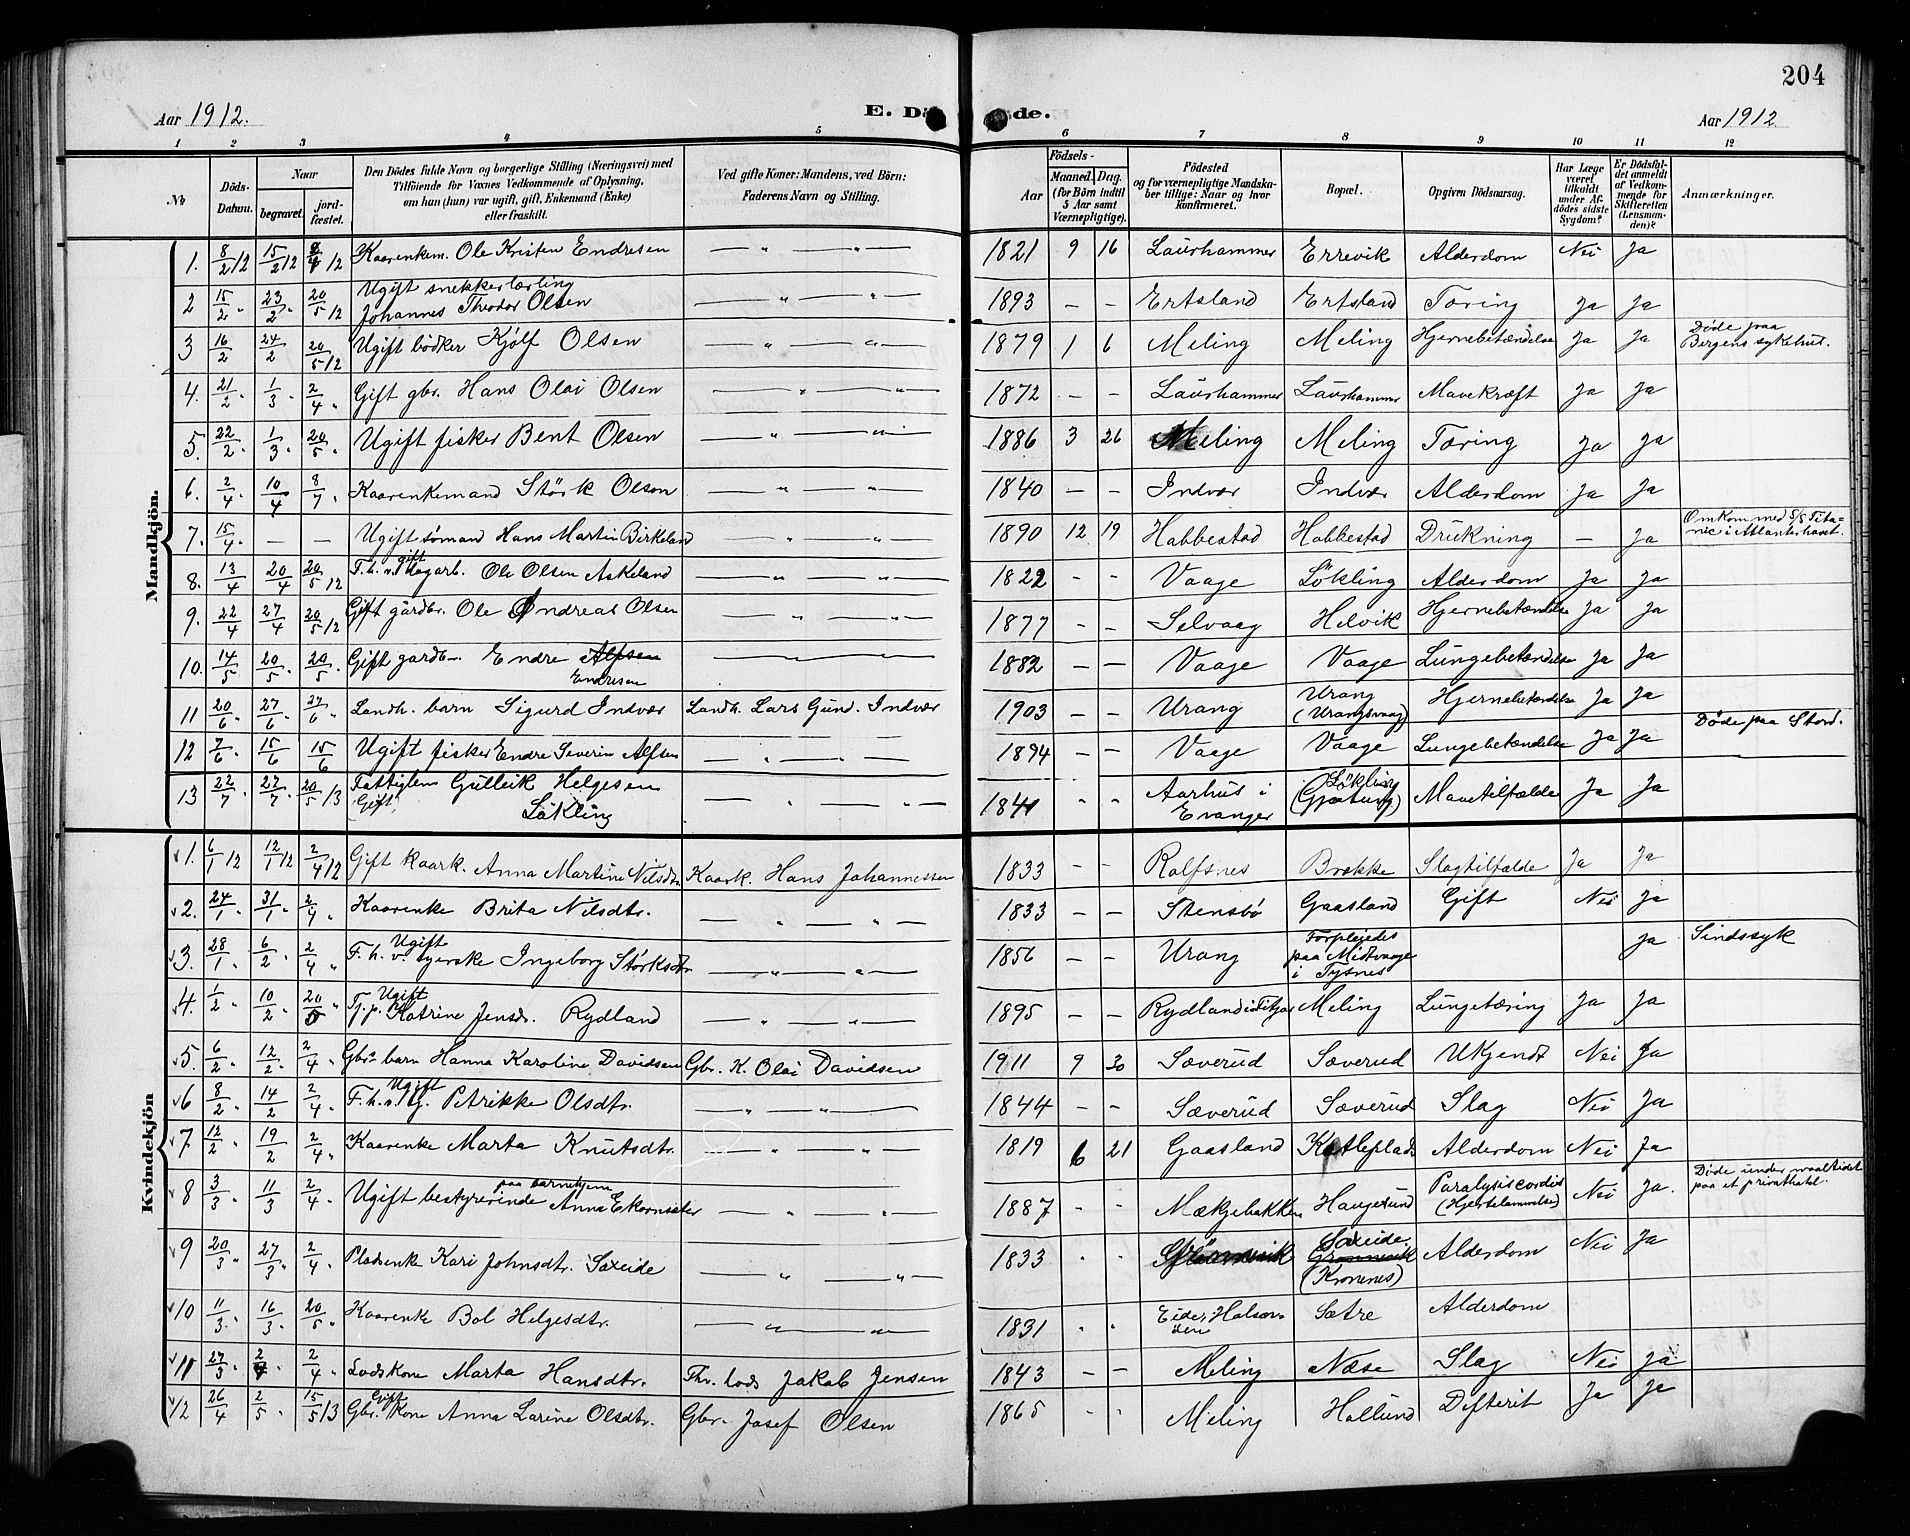 204
Aar 1912. E. Dø de. Aar 1912.
1 2 3 4 5 6 7 8 9 10 11 12
No Döds-Datum. Naar begravet. jordfæstet. Den Dödes fulde Navn og borgerlige Stilling (Næringsvei) med Tilföiende for Voxnes Vedkommende af Oplysning, om han (hun) var ugift, gift, Enkemand (Enke) eller fraskilt. Ved gifte Koner: Mandens, ved Börn: Faderens Navn og Stilling. Födsels- Aar Maaned. Dag. (for Börn indtil 5 Aar samt Værnepligtige). Födested og for værnepligtige Mandskaber tillige: Naar og hvor konfirmeret. Bopæl. Opgiven Dödsaarsag. Har Læge været tilkaldt under Afdödes sidste Sygdom? Er Dödsfaldet anmeldt af Vedkommende for Skifteretten (Lensmanden)? Anmærkninger.
Mandkjön.
1. 8/2 12 15/2 12 2/4 12 Kaarenkem. Ole Kristen Endresen — " — " — 1821 9 16 Laurhammer Errevik Alderdom Nei Ja
2 15/2 " 23/2 " 20/5 12 Ugift snekkerlærling Johannes Theodor Olsen — " — " — 1893 – – Ertsland Ertsland Tæring Ja Ja
3 16/2 24/2 20/5 12 Ugift bödker Kjölf Olsen — " — " — 1879 1 6 Meling Meling Hjernebetændelse Ja Ja Döde paa Bergens sykehus.
4. 21/2 " 1/3 " 2/4 " Gift gbr. Hans Olai Olsen — " — " — 1872 – – Laurhammer Laurhammer Mavekræft Ja Ja
5. 22/2 " 1/3 " 20/5 " Ugift fisker Bent Olsen — " — " — 1886 3 26 Meling Meling Tæring Ja Ja
6. 2/4 " 10/4 8/7 " Kaarenkemand Störk Olson — " — " — 1840 – – Indvær Indvær Alderdom Ja Ja
7. 15/4 " — — Ugift sömand Hans Martin Birkeland — " — " — 1890 12 19 Habbestad Habbestad Drukning — Ja Omkom med S/S Titanic i Atlanterhavet.
8. 13/4 20/4 20/5 12 F. h. v. gift dagarb. Ole Olsen Askeland — " — " — 1822 – – Vaage Lökling Alderdom Ja Ja
9. 22/4 27/4 20/5 12 Gift gårdbr. Ole Andreas Olsen — " — " — 1877 – – Selvaag Helvik Hjernebetændelse Ja Ja
10. 14/5 20/5 " 20/5 " Gift gardb– Endre Alfsen Endresen — " — " — 1882 – – Vaage Vaage Lungebetændelse Ja Ja
11 20/6 " 27/6 " 27/6 " Landh. barn Sigurd Indvær Landh. Lars Gund. Indvær 1903 – – Urang Urang (Urangsvaag) Hjernebetændelse Ja Ja
12 7/6 " 15/6 15/6 Ugift fisker Endre Severin Alfsen — " — " — 1894 – – Vaage Vaage Lungebetændelse Ja Ja Döde paa Stord.
13 22/7 " 27/7 " 20/5 13 Fattiglem Gulleik Helgesen (Gift) Lökling — " — " — 1841 " " Aarhus i Evanger Lökling Mavetilfælde Ja Ja
Kvindekjön
v1. 6/1 12 12/1 12 2/4 12 Gift kaark. Anna Martine Nilsdtr. Kaark. Hans Johannessen 1833 – – Rolfsnes Brekke Slagtilfælde Ja Ja
v2. 24/1 " 31/1 " 2/4 " Kaarenke Brita Nilsdtr. — " — " — 1833 – – Stensbö Gaasland Gift Nei Ja
v3. 28/1 " 6/2 " 2/4 " F. h. v. Ugift Ingeborg Störksdtr — " — " — 1856 – – Urang Forpleiedes paa Mistvaage i Tysnes Ja Sindssyk
v4. 1/2 " 10/2 " 20/5 " Tj. p. Ugift Katrine Jensdr. Rydland — " — " — 1895 – – Rydland i Fitjar Meling Lungetæring Ja Ja
v5. 6/2 " 12/2 " 2/4 " Gbr. barn Hanna Karoline Davidsen Gbr. K. Olai Davidsen 1911 9 30 Sæverud Sæverud Ukjendt Nei Ja
v6 8/2 " 14/2 " 2/4 " F. h. v. Ugift Petrikke Olsdtr. — " — " — 1844 – – Sæverud Sæverud Slag Nei Ja
v7 12/2 " 19/2 2/4 " Kaarenke Marta Knutsdtr. — " — " — 1819 6 21 Gaasland Katleplads Alderdom Nei Ja
v8 3/3 " 11/3 2/4 " Ugift bestyrerinde paa barnehjem Anna Ekornsæter — " — " — 1887 " " Mækjebakken Haugesund Paralysis cordis (Hjertelammelse) Nei Ja. Döde under maaltidet paa et privathotel.
v9 20/3 " 27/3 " 2/4 " Pladsenke Kari Johnsdtr. Sæxeide — " — " — 1833 " " Saxeide (Kronenes) Alderdom Nei Ja
v10 11/3 " 16/3 " 20/5 " Kaarenke Bol Helgesdtr. — " — " — 1831 " " Eide, Halsenöen Sætre Alderdom
v11 27/3 " 2/4 " 2/4 " Lodskone Marta Hansdtr. Fhv. lods Jakob Jensen 1843 – – Meling Næse Slag Nei Ja
v12 26/4 2/5 " 15/5 13 Gbr. Gift kone Anna Larine Olsdtr. Gbr. Josef Olsen 1865 " " Meling Hollund Difterit Ja Ja